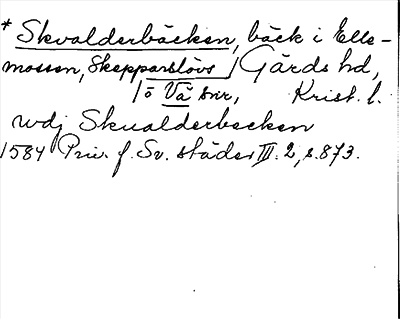 * Skvalderbäcken, bäck i Elle-
mossen, Skepparslövs / Gärds hd,
/ ö Vä snr, Krist. l.
wdj Skualderbecken
1584 Priv. f. Sv. städer III. 2, s. 873.